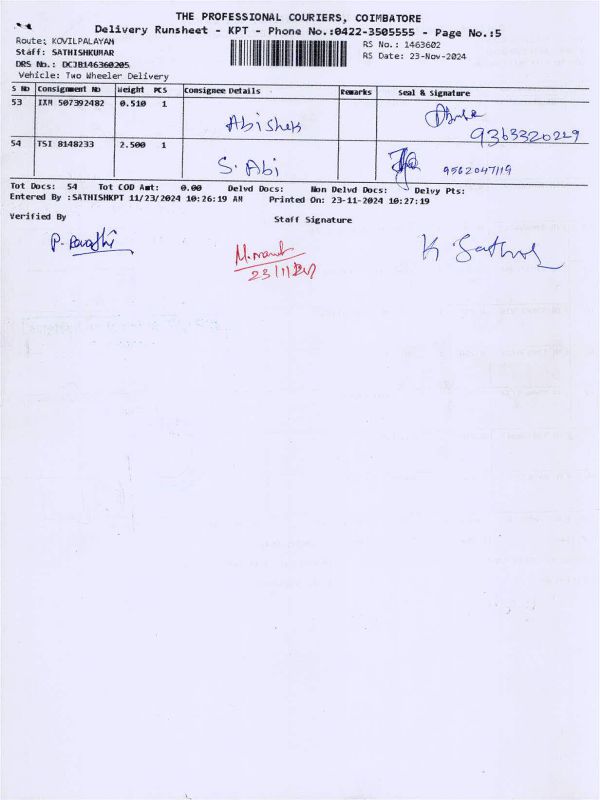 THE PROFESSIONAL COURIERS, COIMBATORE
Delivery Runsheet - KPT - Phone No.:0422-3505555 - Page No.:5
Route: KOVILPALAYAM
RS No.: 1463602
Staff: SATHISHKUMAR
RS Date: 23-Nov-2024
DRS No.: DCJB146360205
Vehicle: Two Wheeler Delivery
S No Consignment No Weight PCS Consignee Details Remarks Seal & Signature
53 IXM 507392482 0.510 1
Abishek
9363320229
54 TSI 8148233 2.500 1
S. Abi
9562047119
Tot Docs: 54 Tot COD Amt: 0.00 Delvd Docs: Non Delvd Docs: Delvy Pts:
Entered By :SATHISHKPT 11/23/2024 10:26:19 AM Printed On: 23-11-2024 10:27:19
Verified By Staff Signature
K Sathish
23/11/24